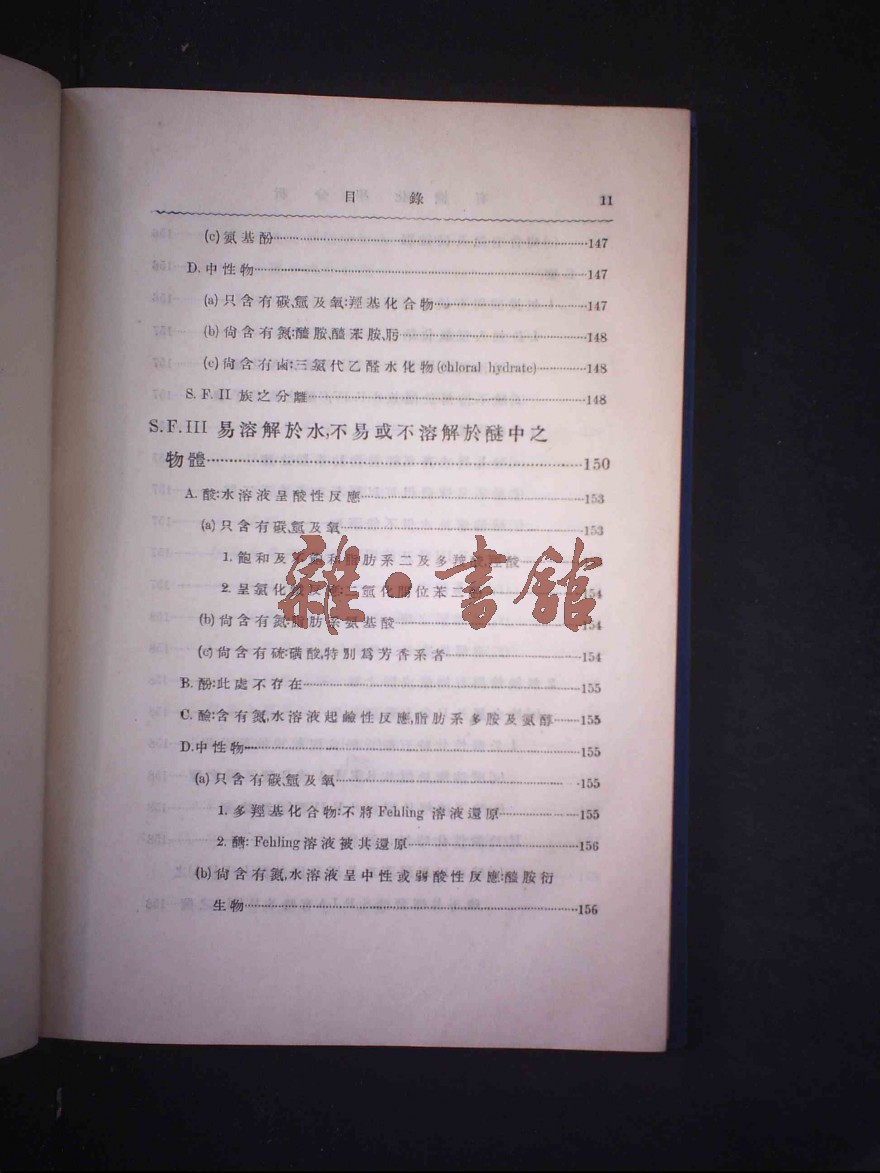 目 錄 11
(c) 氨基酚 147
D. 中性物 147
(a) 只含有碳,氫及氧:羥基化合物 147
(b) 尙含有氮:醯胺,醯苯胺,肟 148
(c) 尙含有鹵:三氯代乙醛水化物 (chloral hydrate) 148
S. F. II 族之分離 148
S. F. III 易溶解於水,不易或不溶解於醚中之
物體 150
A. 酸:水溶液呈酸性反應 153
(a) 只含有碳,氫及氧 153
1. 飽和及不飽和脂肪系二及多羧酸,羥酸
2. 呈氯化 反 : 化 位苯三 154
(b) 尙含有氮:脂肪系氨基酸 154
(c) 尙含有硫:磺酸,特別爲芳香系者 154
B. 酚:此處不存在 155
C. 鹼:含有氮,水溶液起鹼性反應,脂肪系多胺及氨醇 155
D. 中性物 155
(a) 只含有碳,氫及氧 155
1. 多羥基化合物:不將 Fehling 溶液還原 155
2. 醣: Fehling 溶液被其還原 156
(b) 尙含有氮,水溶液呈中性或弱酸性反應:醯胺衍
生物 156
雜·書館